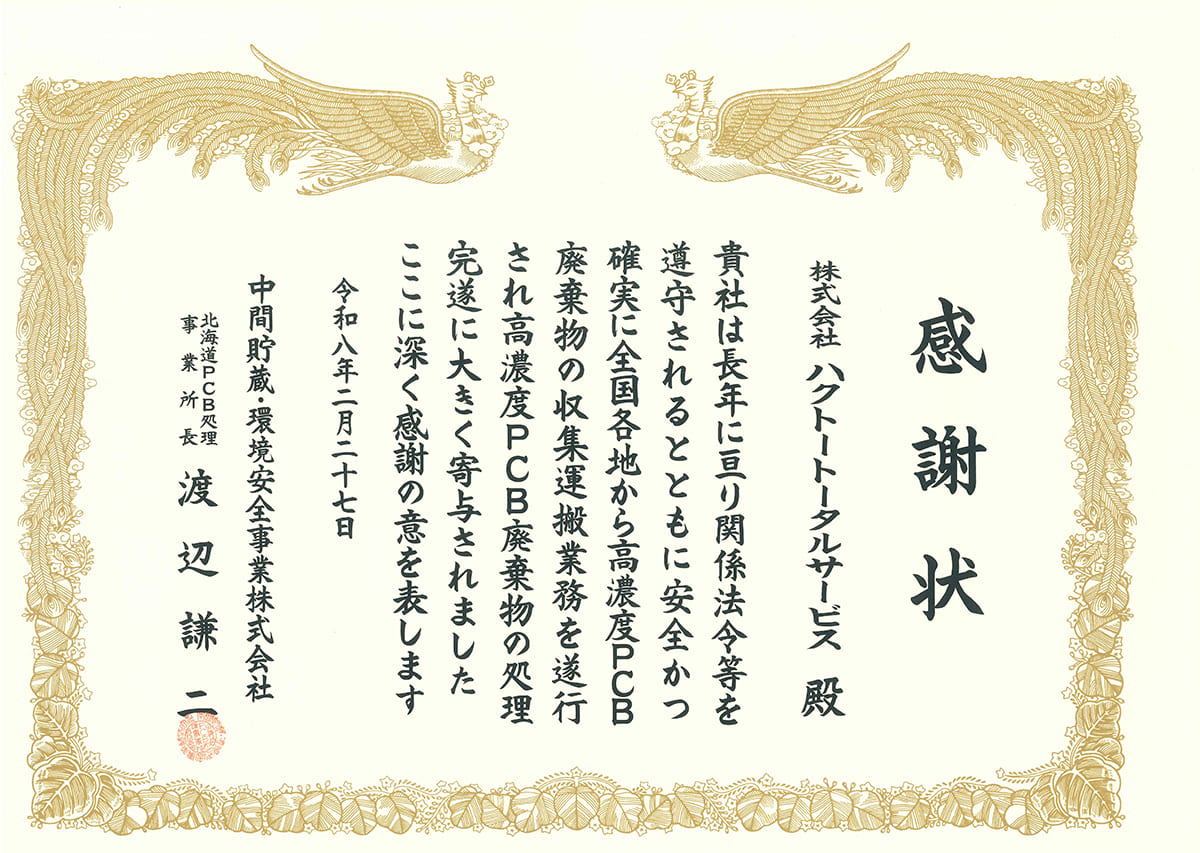 感謝状
株式会社 ハクトートータルサービス 殿
貴社は長年に亘り関係法令等を
遵守されるとともに安全かつ
確実に全国各地から高濃度PCB
廃棄物の収集運搬業務を遂行
され高濃度PCB廃棄物の処理
完遂に大きく寄与されました
ここに深く感謝の意を表します
令和八年二月二十七日
中間貯蔵・環境安全事業株式会社
北海道PCB処理
事業所長
渡辺謙二